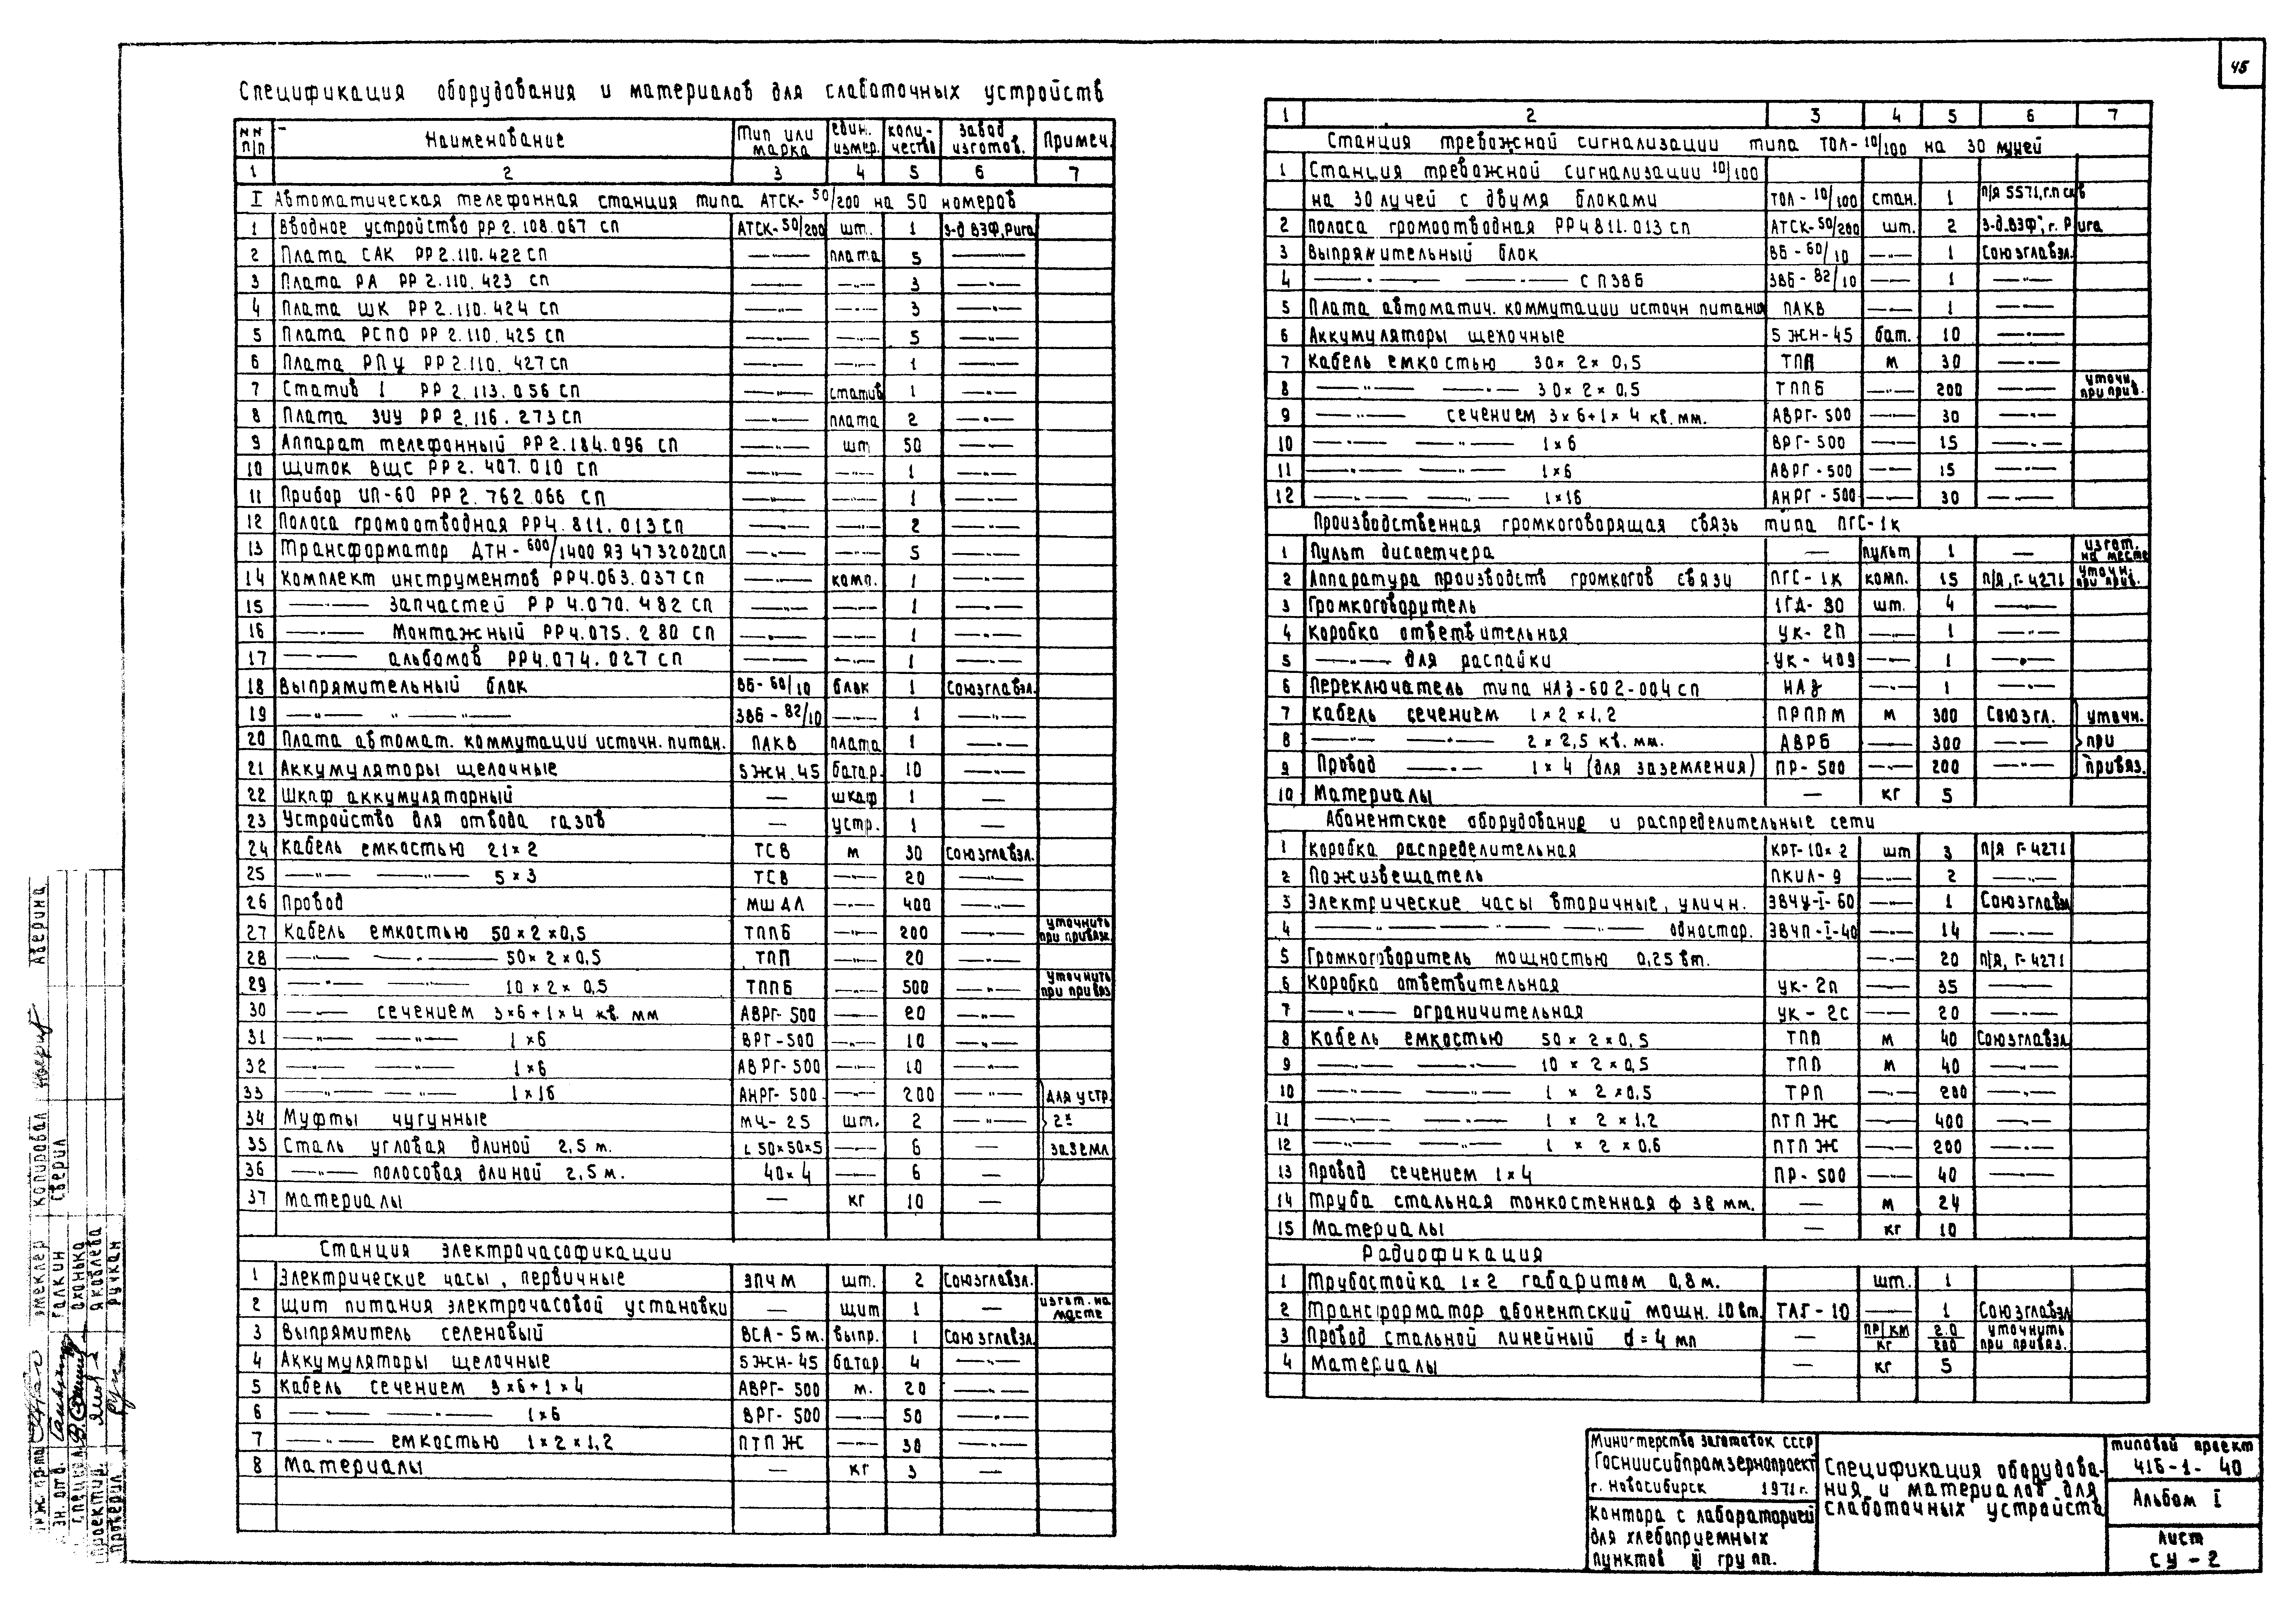 45
Спецификация оборудования и материалов для слаботочных устройств
NN п/п Наименование Тип или марка един. измер. коли-чество завод изготов. Примеч.
1 2 3 4 5 6 7
I Автоматическая телефонная станция типа АТСК-50/200 на 50 номеров
1 Вводное устройство РР2.108.067 СП АТСК-50/200 шт. 1 з-д ВЭФ, Рига
2 Плата САК РР2.110.422 СП —"— плата 5 —"—
3 Плата РА РР2.110.423 СП —"— —"— 3 —"—
4 Плата ШК РР2.110.424 СП —"— —"— 3 —"—
5 Плата РСПО РР2.110.425 СП —"— —"— 5 —"—
6 Плата РПУ РР2.110.427 СП —"— —"— 1 —"—
7 Статив 1 РР2.113.056 СП —"— статив 1 —"—
8 Плата ЗИУ РР2.116.273 СП —"— плата 2 —"—
9 Аппарат телефонный РР2.184.096 СП —"— шт 50 —"—
10 Щиток ВЩС РР2.407.010 СП —"— —"— 1 —"—
11 Прибор ИП-60 РР2.762.066 СП —"— —"— 1 —"—
12 Полоса громоотводная РР4.811.013 СП —"— —"— 2 —"—
13 Трансформатор ДТН-600/1400 ЯЭ4732020СП —"— —"— 5 —"—
14 Комплект инструментов РР4.063.037 СП —"— комп. 1 —"—
15 —"— запчастей РР4.070.482 СП —"— —"— 1 —"—
16 —"— монтажный РР4.075.280 СП —"— —"— 1 —"—
17 —"— альбомов РР4.074.027 СП —"— —"— 1 —"—
18 Выпрямительный блок ВБ-60/10 блок 1 Союзглавэл.
19 —"— " —"— ЗВБ-82/10 —"— 1 —"—
20 Плата автомат. коммутации источн. питан. ПАКВ плата 1 —"—
21 Аккумуляторы щелочные 5ЖН.45 батар. 10 —"—
22 Шкаф аккумуляторный — шкаф 1 —
23 Устройство для отвода газов — устр. 1 —
24 Кабель емкостью 21×2 ТСВ м 30 Союзглавэл.
25 —"— —"— 5×3 ТСВ —"— 20 —"—
26 Провод МШДЛ —"— 400 —"—
27 Кабель емкостью 50×2×0,5 ТППБ —"— 200 —"— уточнить при привязк.
28 —"— —"— 50×2×0,5 ТПП —"— 20 —"—
29 —"— —"— 10×2×0,5 ТППБ —"— 500 —"— уточнить при привяз
30 —"— сечением 3×6+1×4 кв. мм АВРГ-500 —"— 20 —"—
31 —"— —"— 1×6 ВРГ-500 —"— 10 —"—
32 —"— —"— 1×6 АВРГ-500 —"— 10 —"—
33 —"— —"— 1×16 АНРГ-500 —"— 200 —"— для устр.
34 Муфты чугунные МЧ-25 шт. 2 —"— 2х
35 Сталь угловая длиной 2,5 м. L 50×50×5 —"— 6 — заземл
36 —"— полосовая длиной 2,5 м. 40×4 —"— 6 —
37 Материалы — кг 10 —
Станция электрочасофикации
1 Электрические часы, первичные ЭПЧМ шт. 2 Союзглавэл.
2 Щит питания электрочасовой установки — щит 1 — изгот. на месте
3 Выпрямитель селеновый ВСА-5м. выпр. 1 Союзглавэл.
4 Аккумуляторы щелочные 5ЖН-45 батар. 4 —"—
5 Кабель сечением 3×6+1×4 АВРГ-500 м. 20 —"—
6 —"— —"— 1×6 ВРГ-500 —"— 50 —"—
7 —"— емкостью 1×2×1,2 ПТПЖ —"— 30 —"—
8 Материалы — кг 3 —
1 2 3 4 5 6 7
Станция тревожной сигнализации типа ТОЛ-10/100 на 30 лучей
1 Станция тревожной сигнализации 10/100
на 30 лучей с двумя блоками ТОЛ-10/100 стан. 1 п/я 5571,
2 Полоса громоотводная РР4811.013 СП АТСК-50/200 шт. 2 з-д.ВЭФ", г. Рига
3 Выпрямительный блок ВБ-60/10 —"— 1 Союзглавэл.
4 —"— —"— с ПЗВБ ЗВБ-82/10 —"— 1 —"—
5 Плата автоматич. коммутации источн питания ПАКВ —"— 1 —"—
6 Аккумуляторы щелочные 5ЖН-45 бат. 10 —"—
7 Кабель емкостью 30×2×0,5 ТПП м 30 —"—
8 —"— —"— 30×2×0,5 ТППБ —"— 200 —"— уточн. при прив.
9 —"— сечением 3×6+1×4 кв. мм. АВРГ-500 —"— 30 —"—
10 —"— —"— 1×6 ВРГ-500 —"— 15 —"—
11 —"— —"— 1×6 АВРГ-500 —"— 15 —"—
12 —"— —"— 1×16 АНРГ-500 —"— 30 —"—
Производственная громкоговорящая связь типа ПГС-1к
1 Пульт диспетчера — пульт 1 — изгот. на месте
2 Аппаратура производств громкогов связи ПГС-1К комп. 15 п/я, Г-4271 уточн. при прив.
3 Громкоговоритель 1ГД-30 шт. 4 —"—
4 Коробка ответвительная УК-2П —"— 1 —"—
5 —"— для распайки УК-409 —"— 1 —"—
6 Переключатель типа НАЗ-602-004 СП НАЗ —"— 1 —"—
7 Кабель сечением 1×2×1,2 ПРППМ м 300 Союзгл. уточн.
8 —"— —"— 2×2,5 кв. мм. АВРБ —"— 300 —"— при
9 Провод —"— 1×4 (для заземления) ПР-500 —"— 200 —"— привяз.
10 Материалы — кг 5
Абонентское оборудование и распределительные сети
1 Коробка распределительная КРТ-10×2 шт 3 п/я Г-4271
2 Пожизвещатель ПКИЛ-9 —"— 2 —"—
3 Электрические часы вторичные, уличн. ЭВЧУ-I-60 —"— 1 Союзглавэл
4 —"— —"— —"— одностор. ЭВЧП-I-40 —"— 14 —"—
5 Громкоговоритель мощностью 0,25 вт. —"— 20 п/я, Г-4271
6 Коробка ответвительная УК-2п —"— 35 —"—
7 —"— ограничительная УК-2С —"— 20 —"—
8 Кабель емкостью 50×2×0,5 ТПП м 40 Союзглавэл
9 —"— —"— 10×2×0,5 ТПП м 40 —"—
10 —"— —"— 1×2×0,5 ТРП —"— 200 —"—
11 —"— —"— 1×2×1,2 ПТПЖ —"— 400 —"—
12 —"— —"— 1×2×0,6 ПТПЖ —"— 200 —"—
13 Провод сечением 1×4 ПР-500 —"— 40 —"—
14 Труба стальная тонкостенная ф 38 мм. — м 24
15 Материалы — кг 10
Радиофикация
1 Трубостойка 1×2 габаритом 0,8 м. шт. 1
2 Трансформатор абонентский мощн. 10 вт. ТАГ-10 —"— 1 Союзглавэл
3 Провод стальной линейный d=4 мл — пр/км кг 2.0 200 уточнить при привяз.
4 Материалы — кг 5
Министерство заготовок СССР
Госниисибпромзернопроект
г. Новосибирск 1971г.
Контора с лабораторией
для хлебоприемных
пунктов III групп.
Спецификация оборудова-
ния и материалов для
слаботочных устройств
типовой проект
416-1-40
Альбом I
Лист
СУ-2
Эмеклер
Галкин
Яковлева
Ручкан
Проектир.
Проверил
Копировал Аверина
Сверил